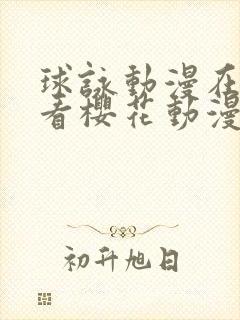 球詠動漫在
看櫻花動漫
初升旭日